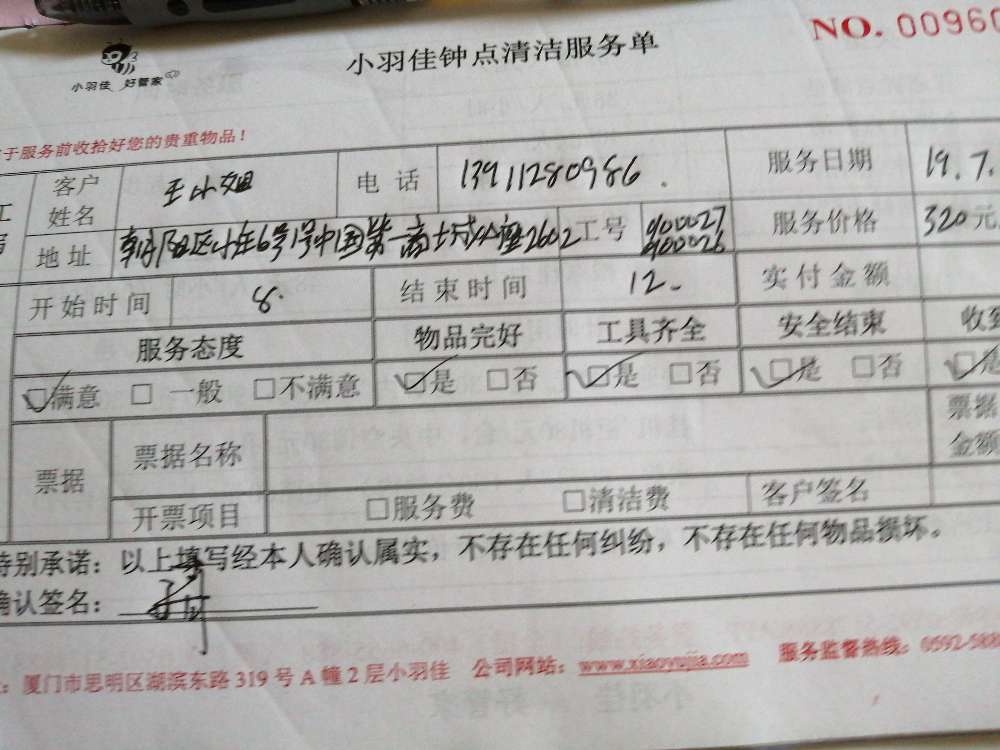 小羽佳钟点清洁服务单
NO. 00960
小羽佳 好管家
于服务前收拾好您的贵重物品！
客户姓名 王小姐 电话 13911280986. 服务日期 19.7.
地址 朝阳区 6号1号中国第一商城 座2602 工号 900027 900026 服务价格 320元
开始时间 8. 结束时间 12. 实付金额
服务态度 物品完好 工具齐全 安全结束 收到
☑满意 □一般 □不满意 ☑是 □否 ☑是 □否 ☑是 □否 ☑是
票据 票据名称 票据金额
开票项目 □服务费 □清洁费 客户签名
特别承诺：以上填写经本人确认属实，不存在任何纠纷，不存在任何物品损坏。
确认签名：
厦门市思明区湖滨东路 319 号 A 幢 2 层小羽佳 公司网站：www.xiaoyujia.com 服务监督热线：0592-588